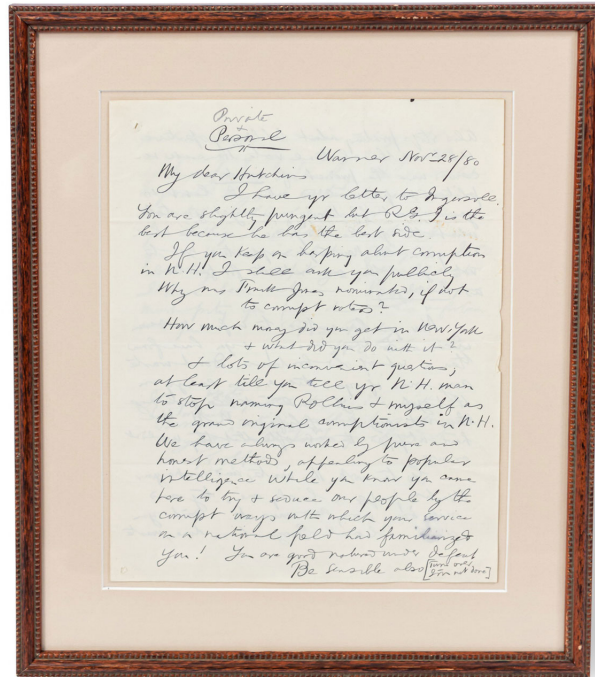 Private
+
Personal
Warner Novr 28/80
My dear Hutchins
I have yr letter to Ingersoll.
You are slightly pungent but R.G.I is the
best because he has the best side
If you keep on harping about corruption
in N.H. I shall ask you publicly
Why was Frank Jones nominated, if not
to corrupt voters?
How much money did you get in New York
+ what did you do with it?
+ lots of inconvenient questions,
at least till you tell yr N.H. man
to stop naming Rollins + myself as
the grand original corruptionists in N.H.
We have always worked by pure and
honest methods, appealing to popular
intelligence while you know you came
here to try + seduce our people by the
corrupt ways with which your service
on a national field had familiarized
you! You are good natured under defeat
Be sensible also [Turn over
I'm not done]